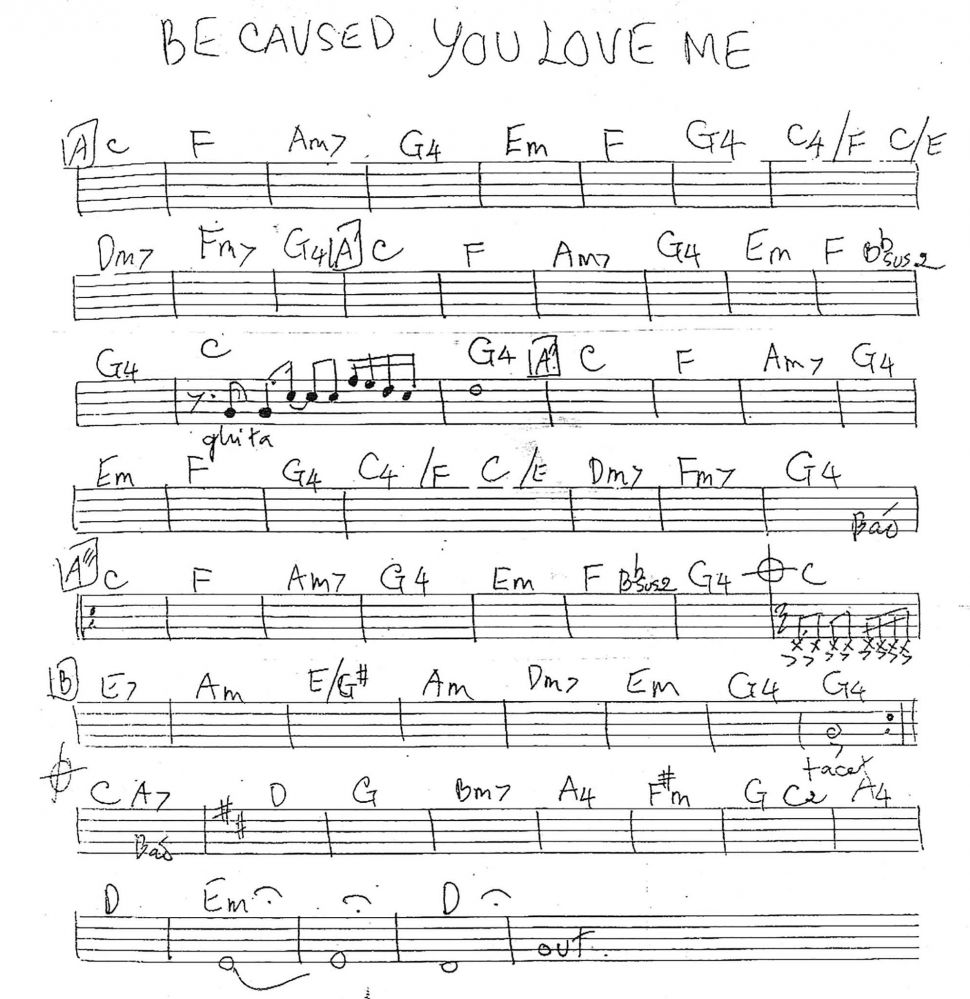 BE CAUSED YOU LOVE ME
A C F Am7 G4 Em F G4 C4 /F C/E
Dm7 Fm7 G4 A' C F Am7 G4 Em F Bbsus2
G4 C G4 A" C F Am7 G4
ghita
Em F G4 C4 /F C /E Dm7 Fm7 G4
Báo
A"' C F Am7 G4 Em F Bbsus2 G4 C
B E7 Am E/G# Am Dm7 Em G4 G4
tacet
C A7 D G Bm7 A4 F#m G C2 A4
Báo
D Em D
OUT.